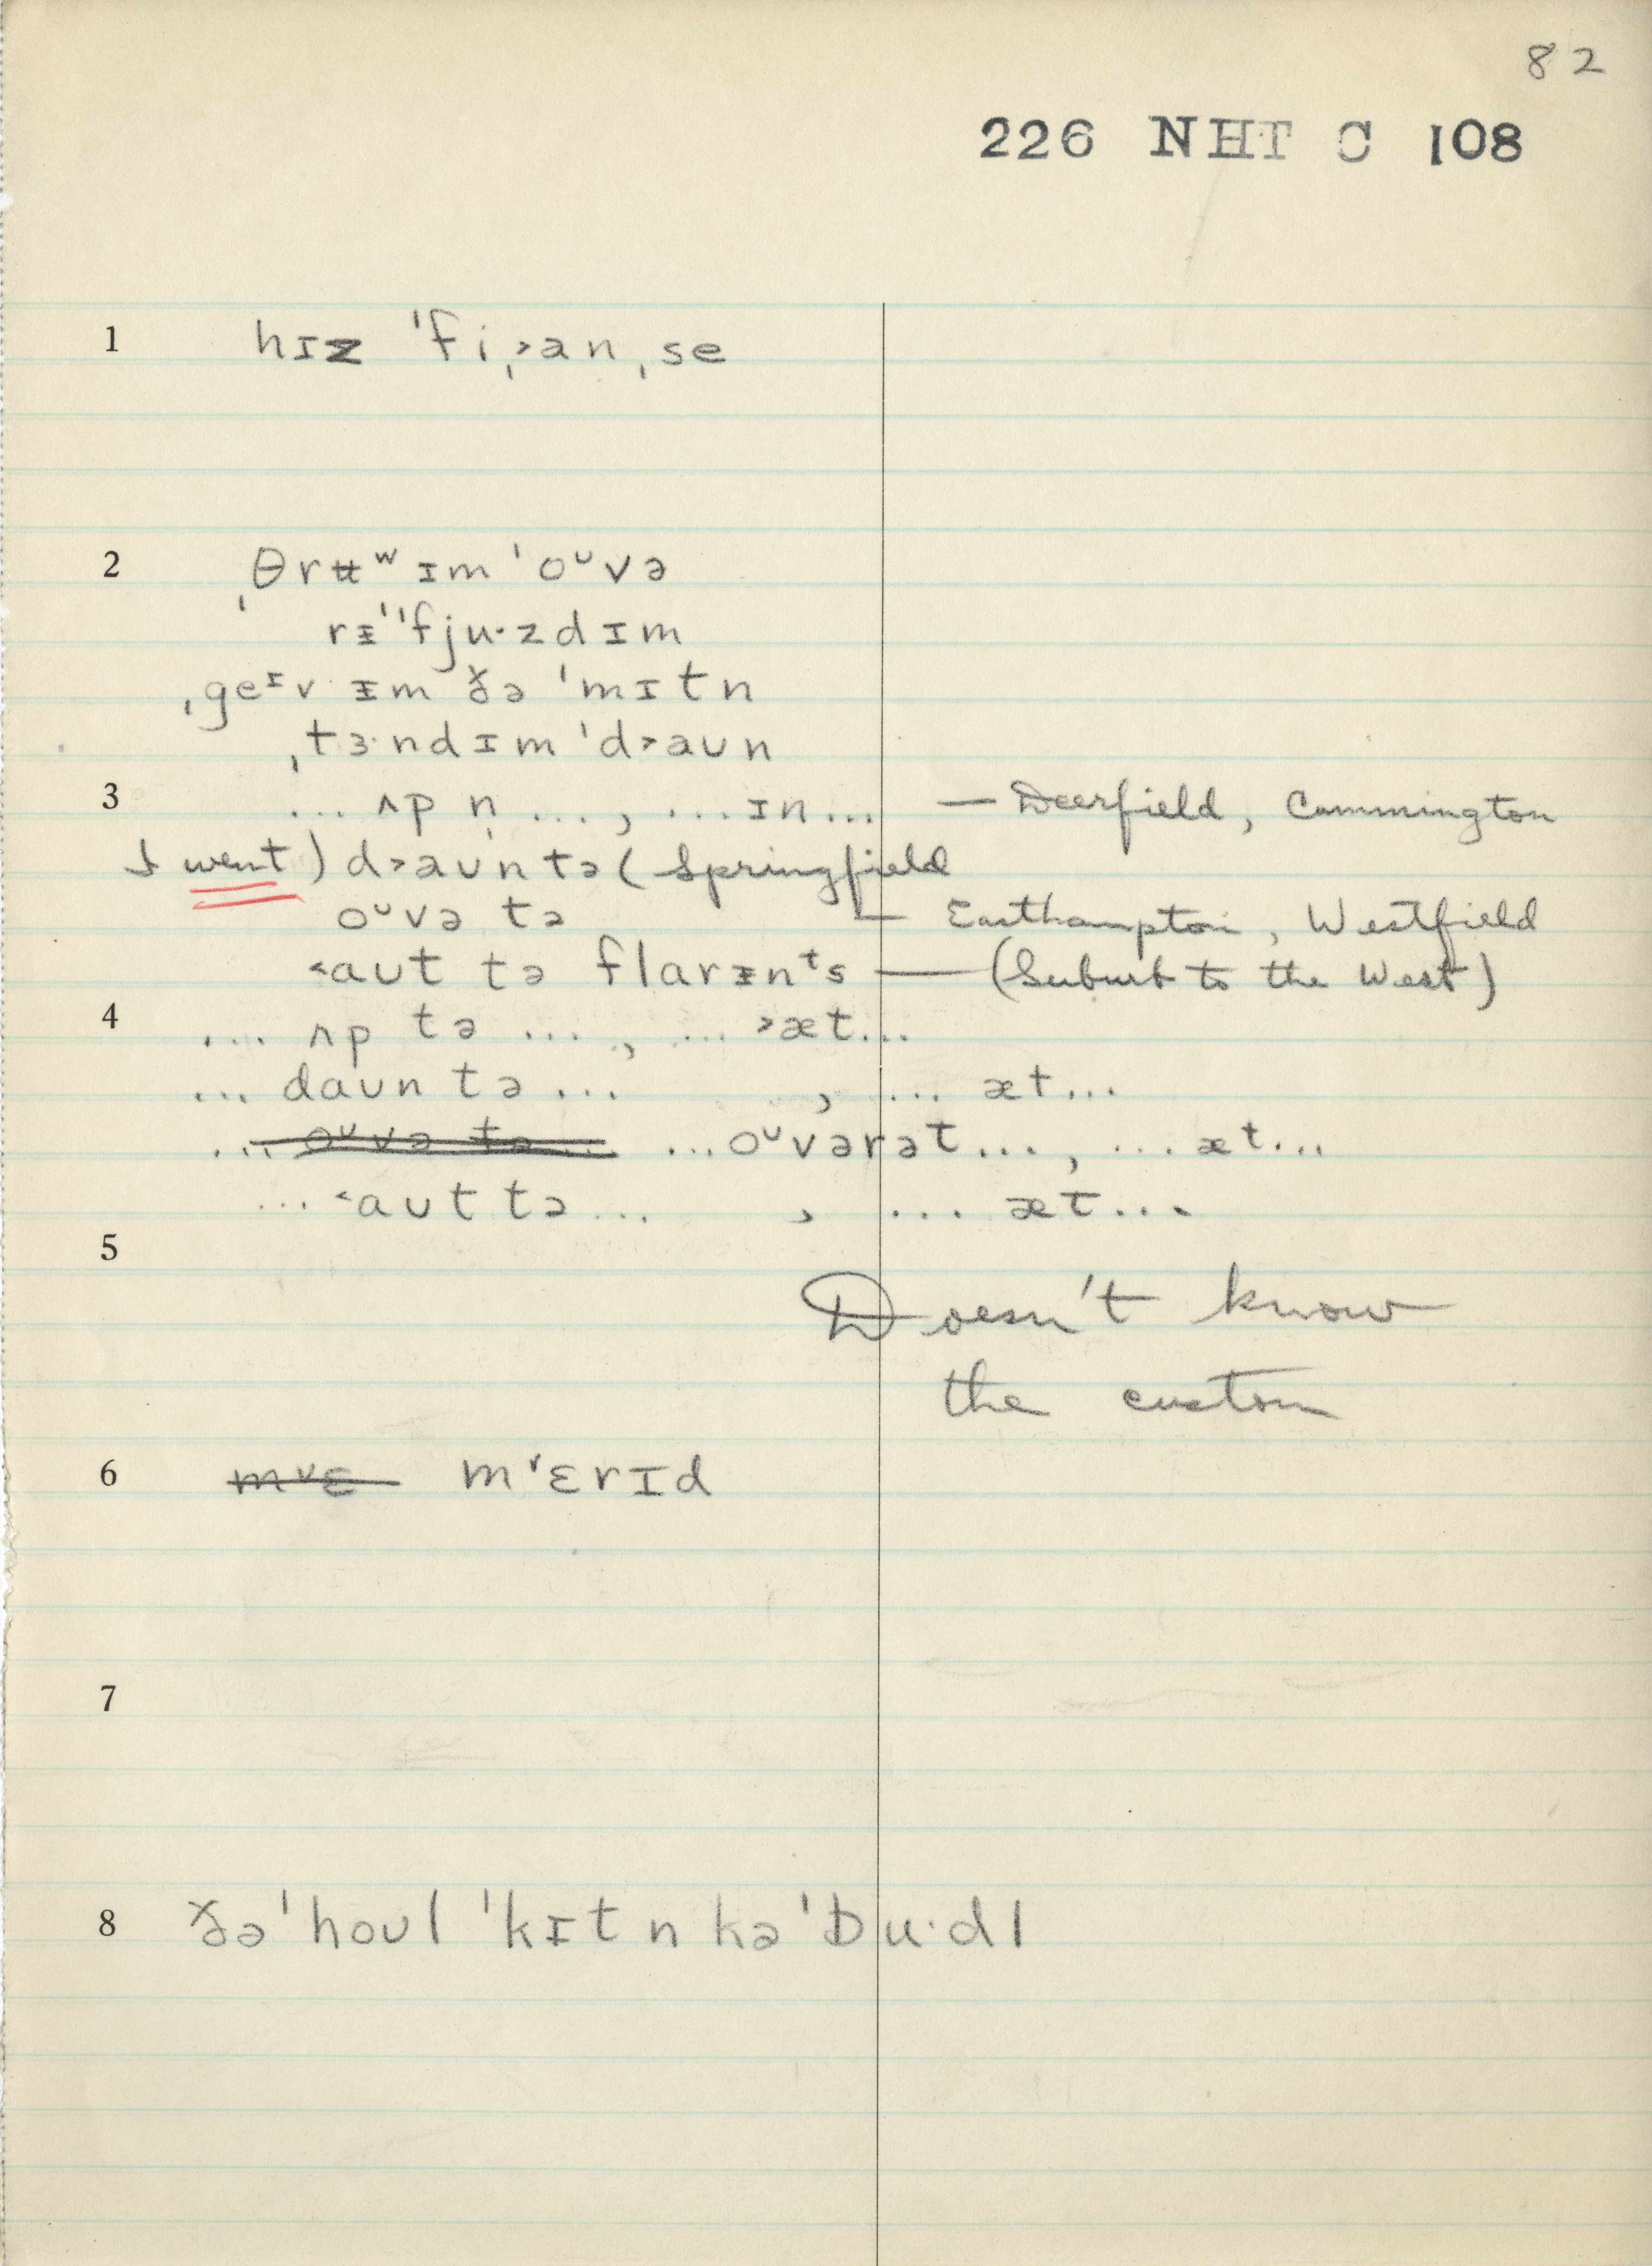 82
226 NHT C 108
1 hɪz ˈfiˌ˃anˌse
2 ˌθrʉʷ ɪm ˈoᶷvə
rᵻˈˈfjuˑzdɪm
ˌgeᶦv ᵻm ðə ˈmɪtn
ˌtɜˑndɪm ˈd˃aʊn
3 ... ʌp n̩ ..., ...ɪn... — Deerfield, Cummington
I went) d˃aʊn tə ( Springfield
oᶷvə tə — Easthampton, Westfield
˂aʊt tə flarᵻnᵗs — (Suburb to the West)
4 ... ʌp tə ..., ... ˃æt...
... daʊn tə ... , ... æt...
... oᶷvə tə... ...oᶷvərət..., ...æt...
... ˂aʊt tə ... , ... æt...
5 Doesn't know
the custom
6 mᵛɛ m˅ɛrɪd
7
8 ðə ˈhoʊl ˈkɪt n kəˈbuˑdl